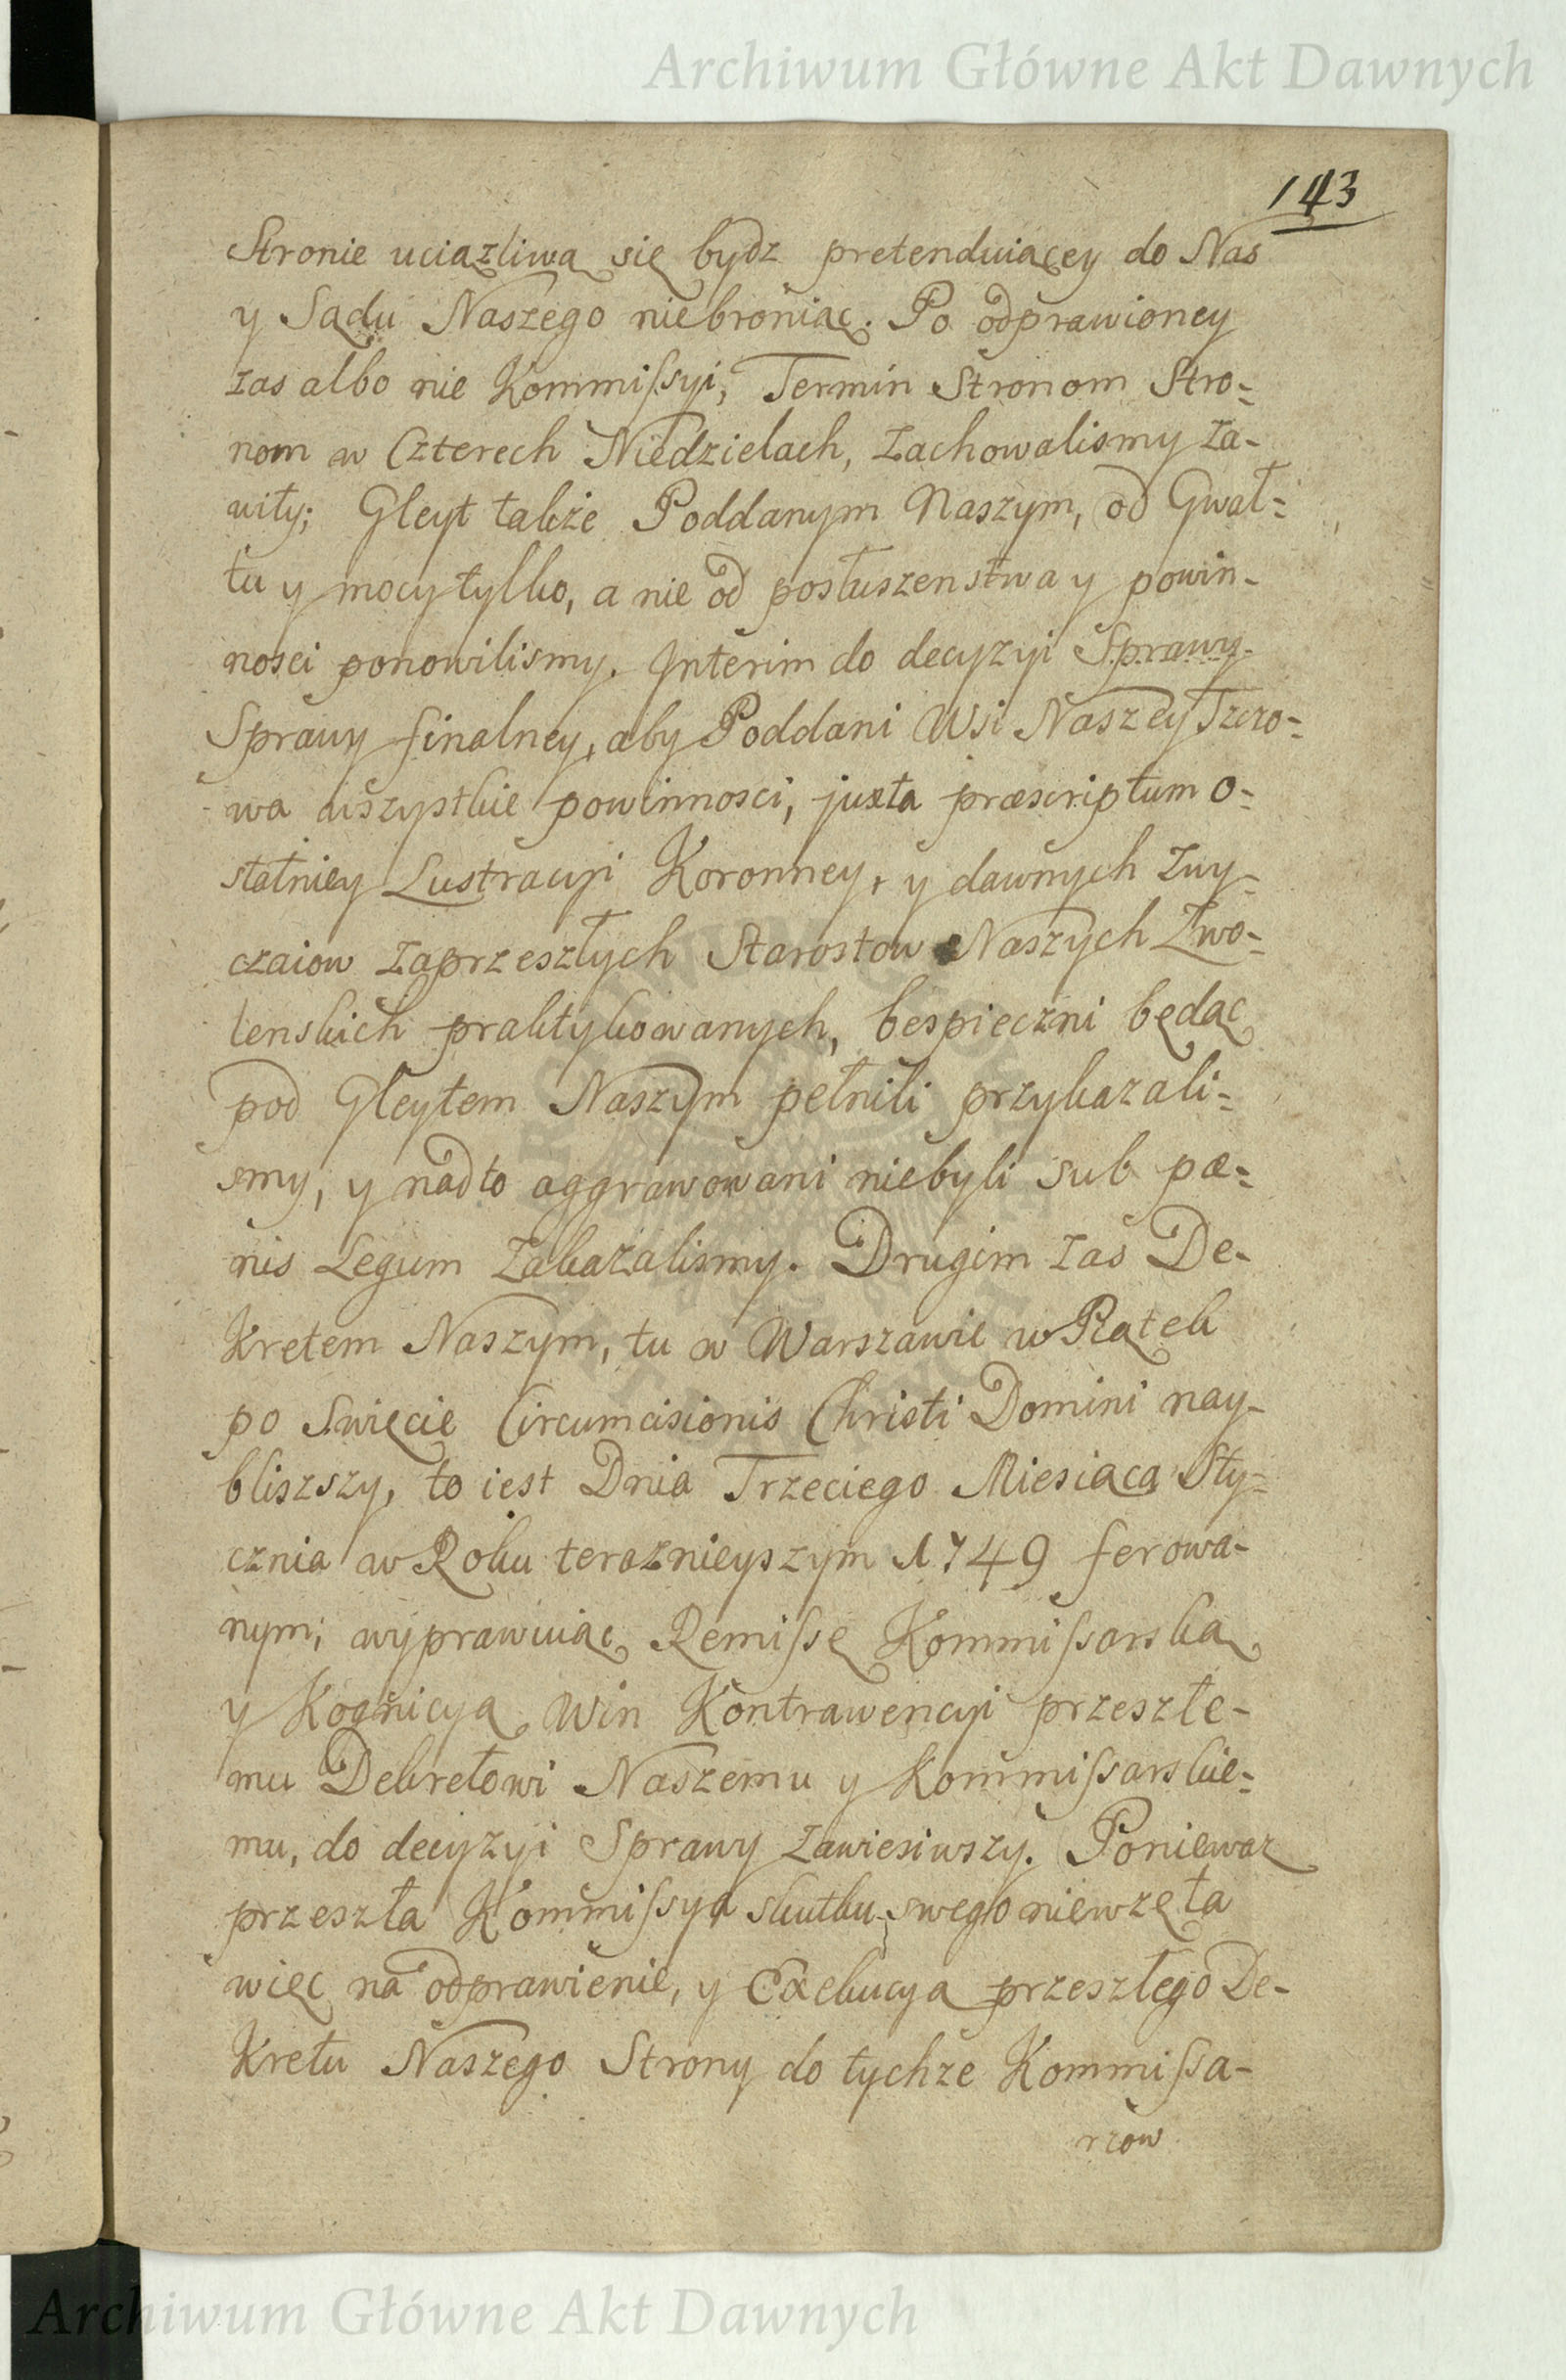 Archiwum Główne Akt Dawnych
143
Stronie uciązliwą się bydz pretenduiącey do Nas
y Sądu Naszego niebroniąc. Po odprawioney
zas albo nie Kommissyi, Termin Stronom Stro-
nom w Czterech Niedzielach, zachowalismy za-
wity; Gleyt także Poddanym Naszym, od Gwał-
tu y mocy tylko, a nie od posłuszenstwa y powin-
nosci ponowilismy. Interim do decyzyi Sprawy
Sprawy finalney, aby Poddani Wsi Naszey Tczo-
wa wszystkie powinnosci, juxta præscriptum o-
statniey Lustracyi Koronney, y dawnych zwy-
czaiow zaprzeszłych Starostow Naszych Zwo-
lenskich praktykowanych, bespieczni będąc
pod Gleytem Naszym pełnili przykazali-
smy, y nadto aggrawowani niebyli sub pæ-
nis Legum Zakazalismy. Drugim zas De-
kretem Naszym, tu w Warszawie w Piątek
po Swięcie Circumcisionis Christi Domini nay-
bliszszy, to iest Dnia Trzeciego Miesiąca Sty-
cznia w Roku teraznieyszym 1749 ferowa-
nym, wyprawuiąc Remissę Kommissarską
y Kognicyą Win Kontrawencyi przeszłe-
mu Dekretowi Naszemu y Kommissarskie-
mu, do decyzyi Sprawy zawiesiwszy. Poniewaz
przeszła Kommissya skutku swego niewzęła
więc na odprawienie, y Exekucya przeszłego De-
kretu Naszego Strony do tychze Kommissa-
rzow
Archiwum Główne Akt Dawnych